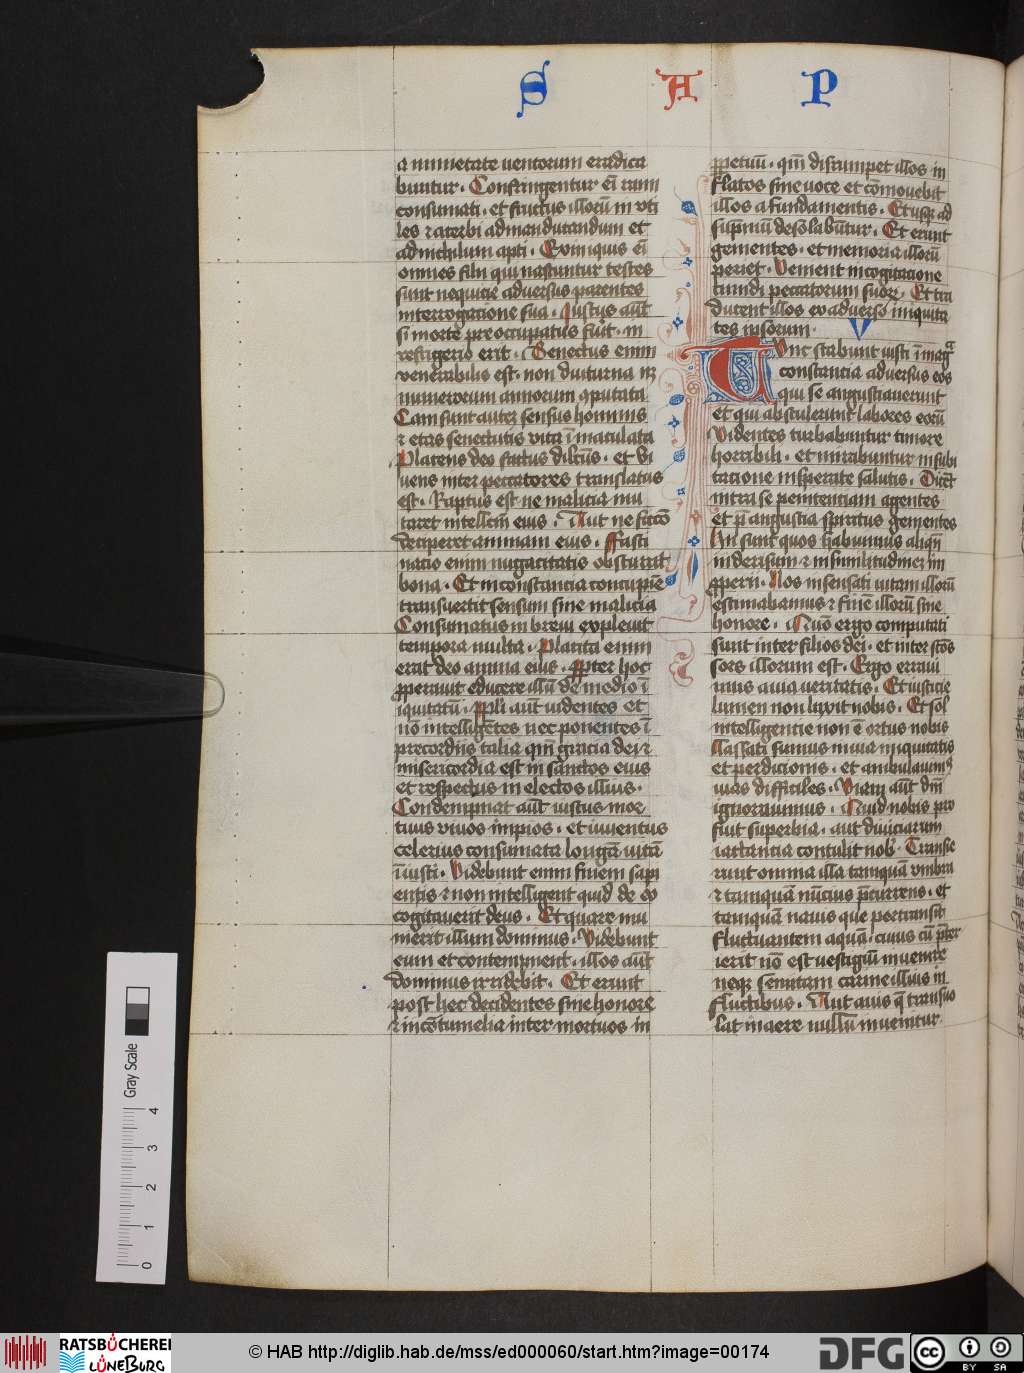 S A P
a nimietate uentorum eradica
buntur . Confringentur eī rami
consumati . et fructus illorū in vti
les ⁊ acerbi ad manducandum et
ad nichilum apti . Ex iniquis eī
omnes filii qui nascuntur testes
sunt nequicie aduersus parentes
interrogatione sua . Iustus aūt
si morte preoccupatus fūit . in
refrigerio erit . Senectus enim
venerabilis est . non diuturna nꝫ
numerorum annorum ꝯputata
Cani sunt autem sensus hominis
⁊ etas senectutis vita īmaculata
Placens deo factus dilcūs . et vi
uens inter peccatores translatus
est . Raptus est ne malicia mu
taret intellcm̄ eius . Aut ne fictō
deciperet animam eius . Fasci
nacio enim nugacitatis obscurat
bona . Et inconstancia concupīe
transuertit sensum sine malicia
Consumatus in breui expleuit
tempora multa . Placita enim
erat deo anima eius . ꝓpter hoc
ꝓperauit educere illū de medio ī
iquitatū . ppl̄i aūt uidentes et
nō intelligētes nec ponentes ī
precordiis talia qm̄ gracia dei ⁊
misericordia est in sanctos eius
et respectus in electos illius .
Condempnat aūt iustus mor
tuus viuos impios . et iuuentus
celerius consumata longā uitā
īiusti . Videbunt enim finem sapi
entis ⁊ non intelligent quid de eo
cogitauerit deus . Et quare mu
nierit illum dominus . Videbunt
eum et contempnent . illos aūt
dominus irridebit . Et erunt
post hec decidentes sine honore
⁊ in cōtumelia inter mortuos in
ꝑpetuū . qm̄ disrumpet illos in
flatos sine uoce et cōmouebit
illos a fundamentis . Et usqꝫ ad
supmū desolabūtur . Et erunt
gementes . et memoria illorū
periet . Venient in cogitatione
timidi peccatorum suorꝫ . Et tra
ducent illos ex aduerso iniquita
tes ipsorum . V
Tunc stabunt iusti ī magᵃ
constancia aduersus eos
qui se angustiauerunt
et qui abstulerunt labores eorū
Videntes turbabuntur timore
horribili . et mirabuntur in subi
tacione insperate salutis . Dicēt
intra se penitentiam agentes
et p̄ angustia spiritus gementes
Hii sunt quos habuimus aliqn̄
in derisum ⁊ in similitudinem im
ꝓperii . Nos insensati uitam illorū
estimabamus ⁊ finē illorū sine
honore . Quō ergo computati
sunt inter filios dei . et inter scōs
sors illorum est . Ergo erraui
mus a uia ueritatis . Et iusticie
lumen non luxit nobis . Et sol
intelligentie non ē ortus nobis
Lassati sumus in uia iniquitatis
et perdicionis . et ambulauimꝰ
uias difficiles . Viam aūt dn̄i
ignorauimus . Quid nobis pro
fuit superbia . aut diuiciarum
iactancia contulit nob̄ . Transie
runt omnia illa tamquā vmbra
⁊ tamquā nūcius p̄currens . et
tamquā nauis que pertransit
fluctuantem aquā . cuius cū p̄ter
ierit nō est vestigiū inuenire
neqꝫ semitam carine illius in
fluctibus . Aut auis q̄ transuo
lat in aere nullū inuenitur
Gray Scale
0 1 2 3 4
RATSBÜCHEREI
LÜNEBURG
© HAB http://diglib.hab.de/mss/ed000060/start.htm?image=00174
DFG
cc BY SA